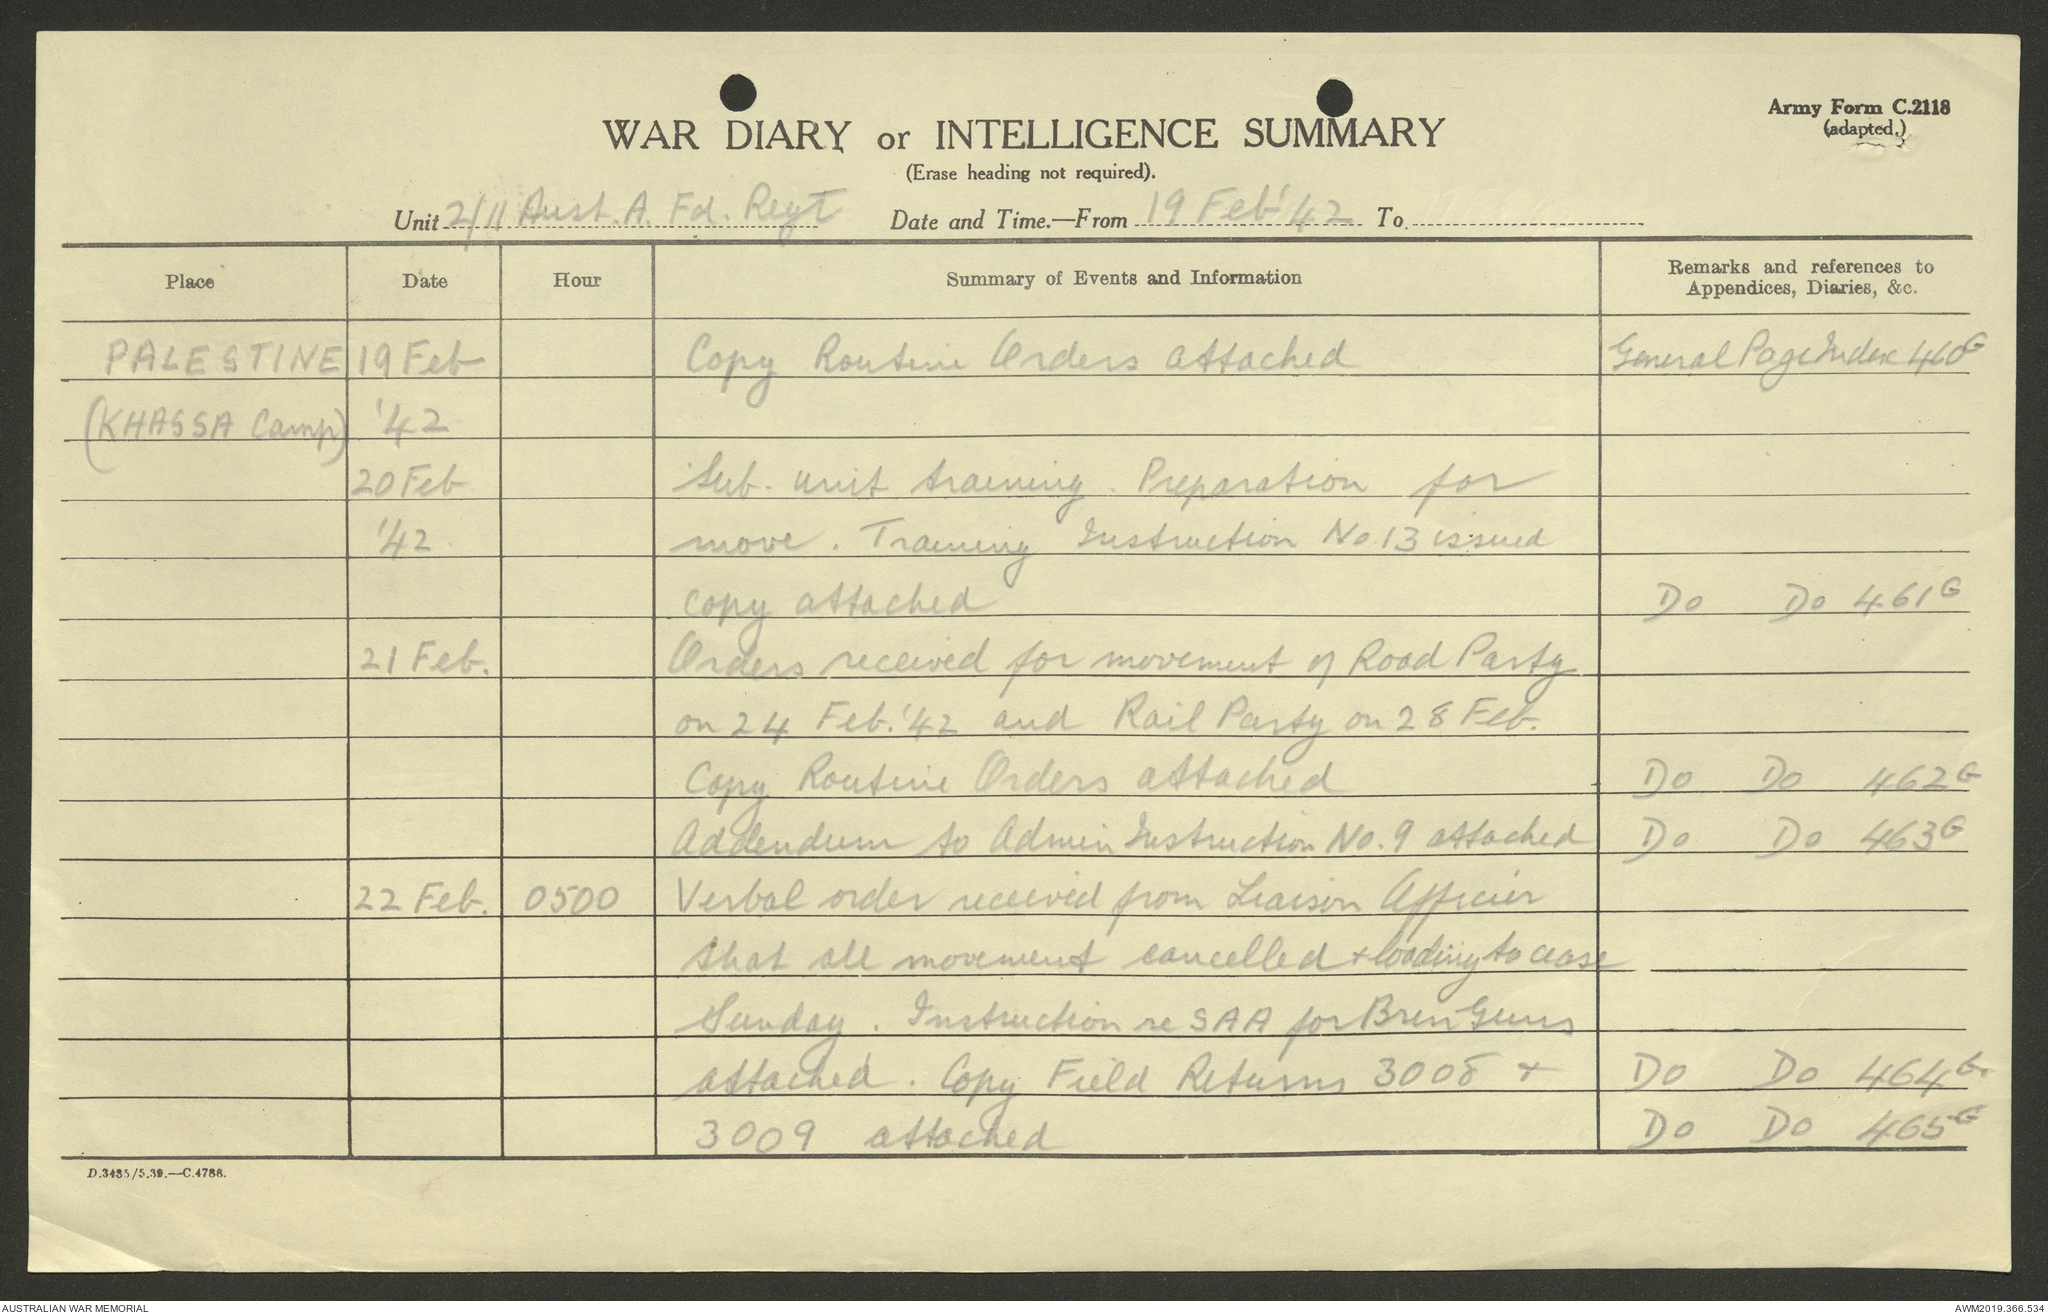 Army Form C.2118
(adapted.)
WAR DIARY or INTELLIGENCE SUMMARY
(Erase heading not required).
Unit 2/11 Aust. A. Fd. Regt Date and Time.—From 19 Feb '42 To
Place Date Hour Summary of Events and Information Remarks and references to Appendices, Diaries, &c.
PALESTINE 19 Feb Copy Routine Orders attached General Page Index 460G
(KHASSA Camp) '42
20 Feb Sub-unit training. Preparation for
'42 move. Training Instruction No.13 issued
copy attached Do Do 461G
21 Feb. Orders received for movement of Road Party
on 24 Feb. '42 and Rail Party on 28 Feb.
Copy Routine Orders attached Do Do 462G
Addendum to Admin Instruction No. 9 attached Do Do 463G
22 Feb. 0500 Verbal order received from Liaison Officer
that all movement cancelled & loading to cease
Sunday. Instruction re SAA for Bren Guns
attached. Copy Field Returns 3008 & Do Do 464G.
3009 attached Do Do 465G
D.3435/5.39.—C.4788.
AUSTRALIAN WAR MEMORIAL AWM2019.366.534